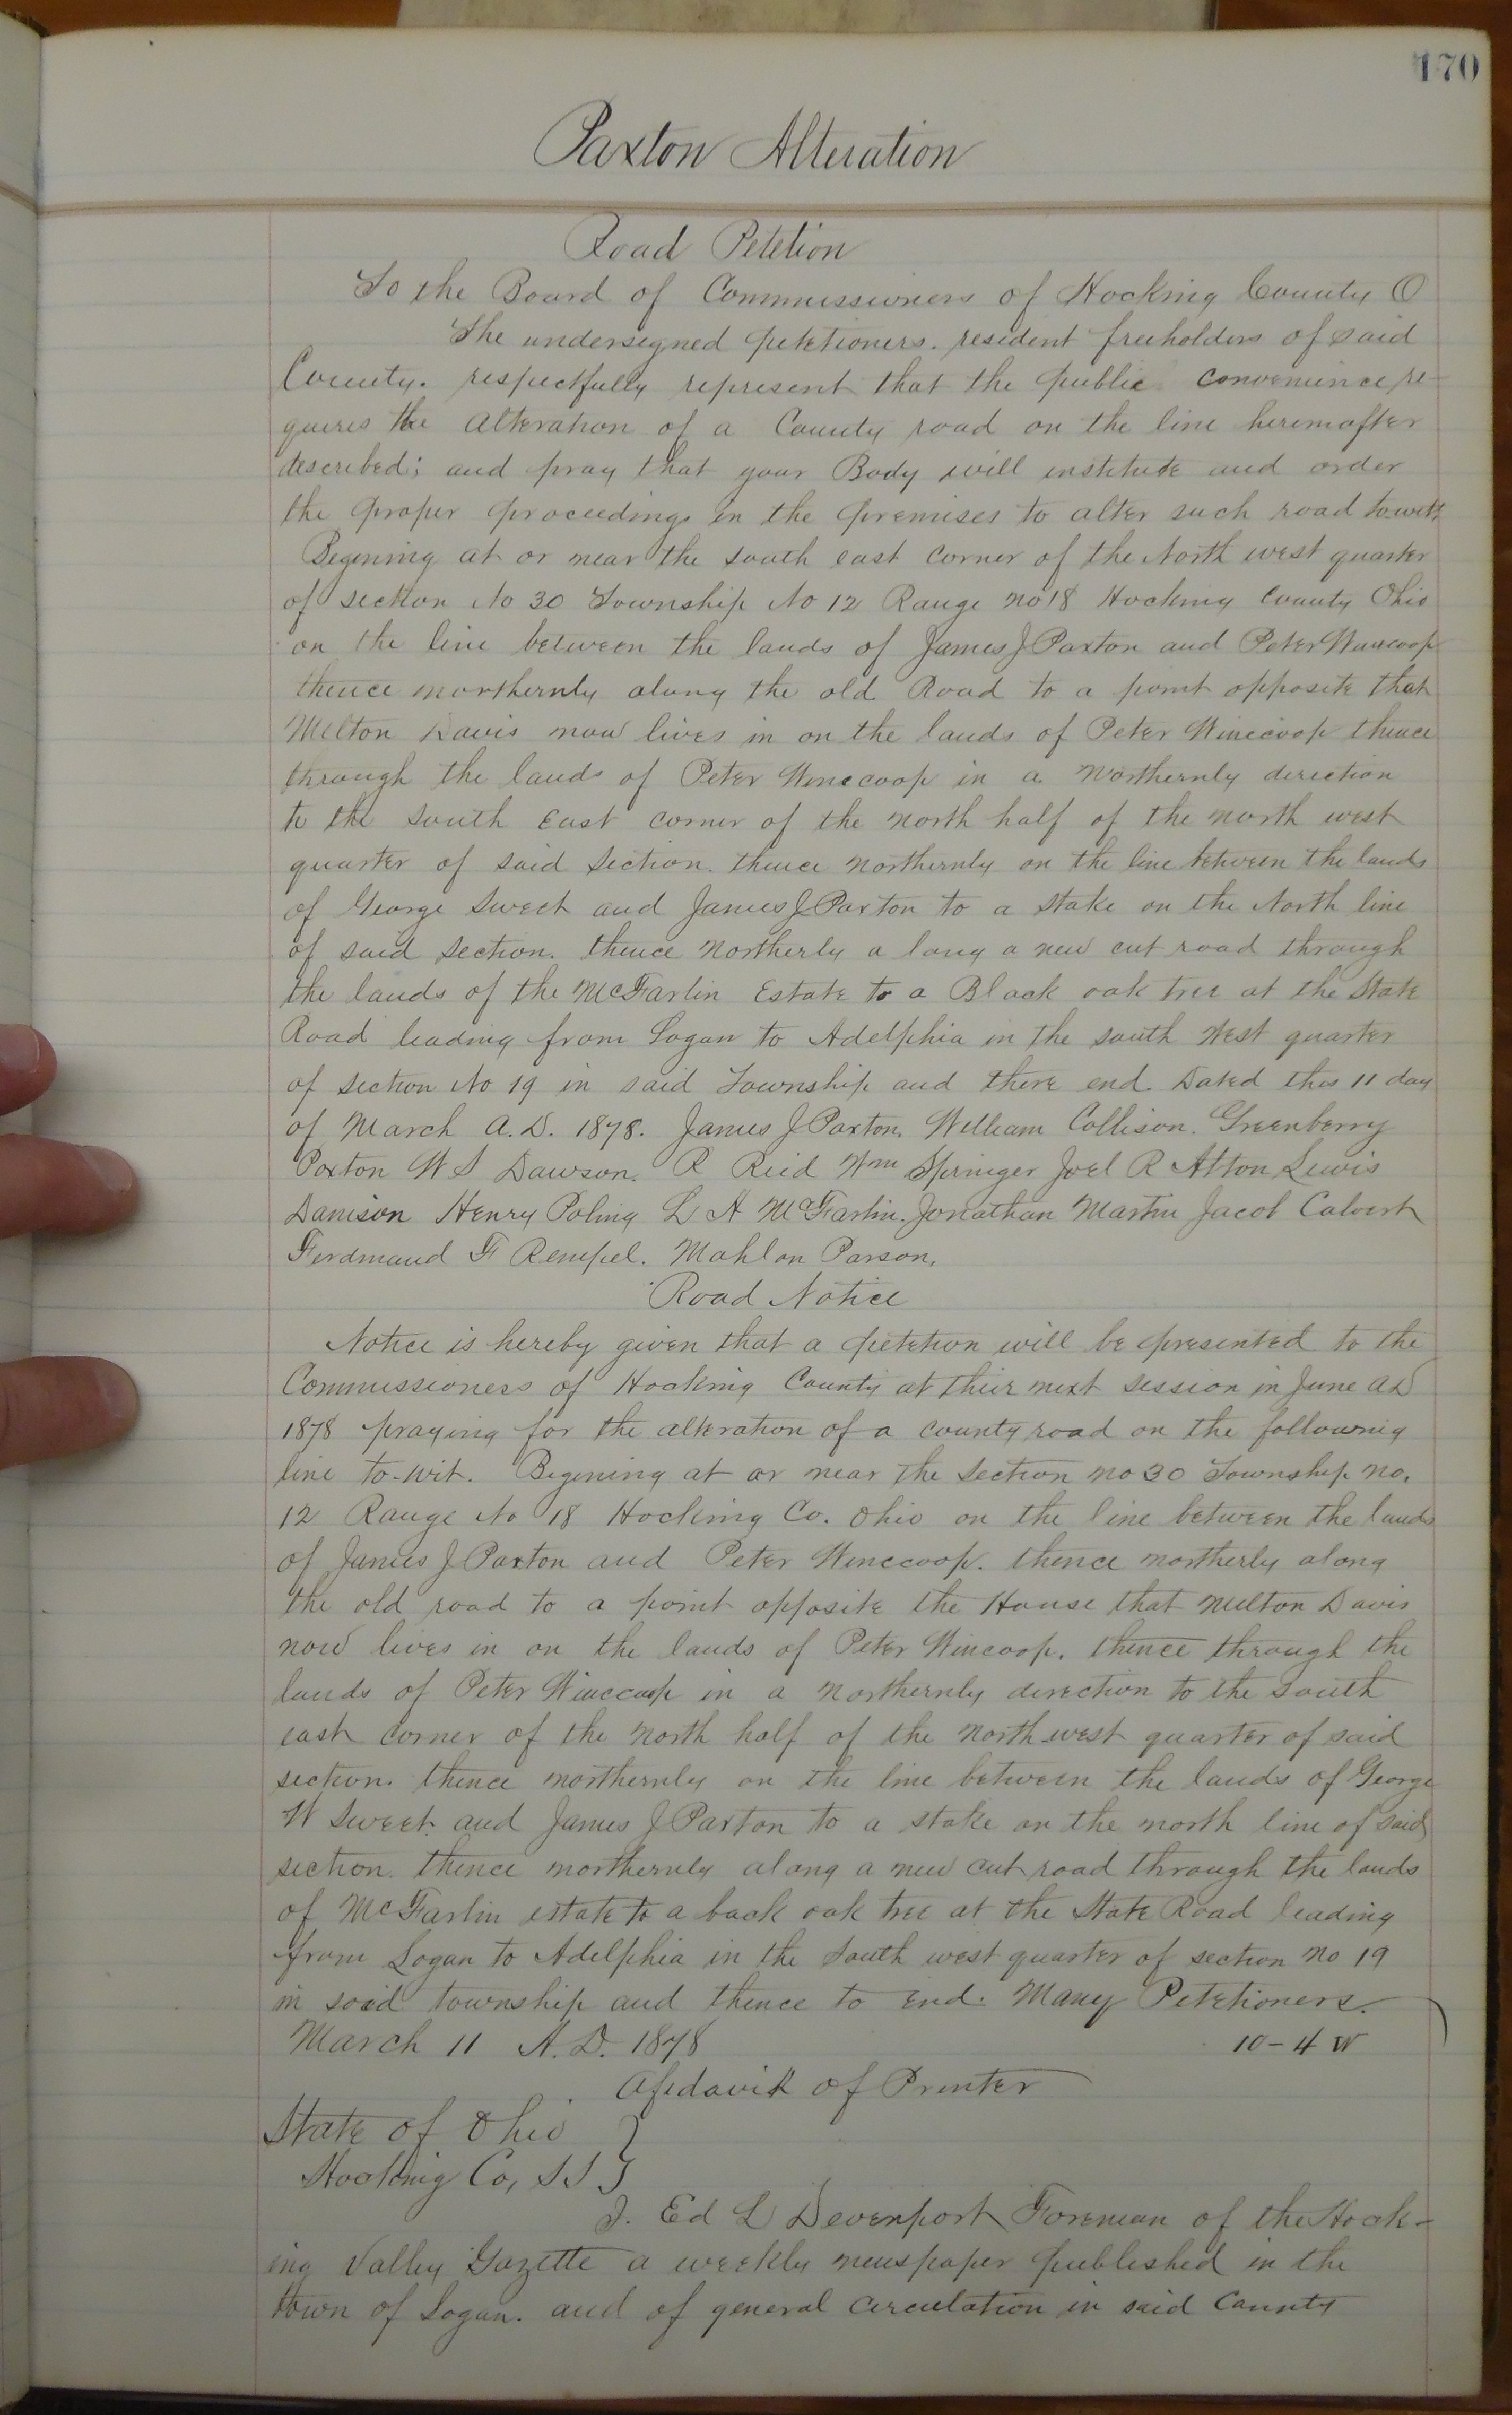 170
Paxton Alteration
Road Petetion
To the Board of Commissioners of Hocking County O
The undersigned petetioners. resident freeholders of said
County. respectfully represent that the public convenience re-
quires the alteration of a County road on the line hereinafter
described; and pray that your Body will institute and order
the proper proceedings in the premises to alter such road to-wit,
Begening at or near the south east corner of the North west quarter
of section No 30 Township No 12 Range no 18 Hocking County Ohio
on the line between the lands of James J Paxton and Peter Winecoop
thence northernly along the old Road to a point opposite that
Melton Davis now lives in on the lands of Peter Winecoop thence
through the lands of Peter Winecoop in a Northernly direction
to the south East corner of the north half of the north west
quarter of said section. thence northernly on the line between the lands
of George Sweet and James J Paxton to a stake on the North line
of said section. thence northerly a long a new cut road through
the lands of the McFarlin Estate to a Black oak tree at the State
Road leading from Logan to Adelphia in the south West quarter
of section No 19 in said Township and there end. Dated this 11 day
of March A.D. 1878. James J Paxton. William Collison. Greenberry
Paxton W S Dawson. R Reid Wm Springer Joel R Atton Lewis
Danison Henry Poling L A McFarlin. Jonathan Martin Jacob Calvert
Ferdinand F Rempel. Mahlon Parson.
Road Notice
Notice is hereby given that a petetion will be presented to the
Commissioners of Hocking County at their next session in June AD
1878 praying for the alteration of a county road on the following
line to-wit. Begening at or near the section no 30 Township no.
12 Range No 18 Hocking Co. Ohio on the line between the lands
of James J Paxton and Peter Winecoop. thence northerly along
the old road to a point opposite the House that Melton Davis
now lives in on the lands of Peter Wincoop. thence through the
lands of Peter Winecoop in a northernly direction to the south
east corner of the north half of the north west quarter of said
section. thence northernly on the line between the lands of George
W Sweet and James J Paxton to a stake on the north line of said
section. thence northernly along a new cut road through the lands
of McFarlin estate to a back oak tree at the State Road leading
from Logan to Adelphia in the South west quarter of section no 19
in said township and thence to end. Many Petetioners.
March 11 A.D. 1878 10-4 W
Afidavit of Printer
State of Ohio }
Hocking Co, SS }
I. Ed L Devenport Foreman of the Hock-
ing Valley Gazette a weekly newspaper published in the
town of Logan. and of general circulation in said County